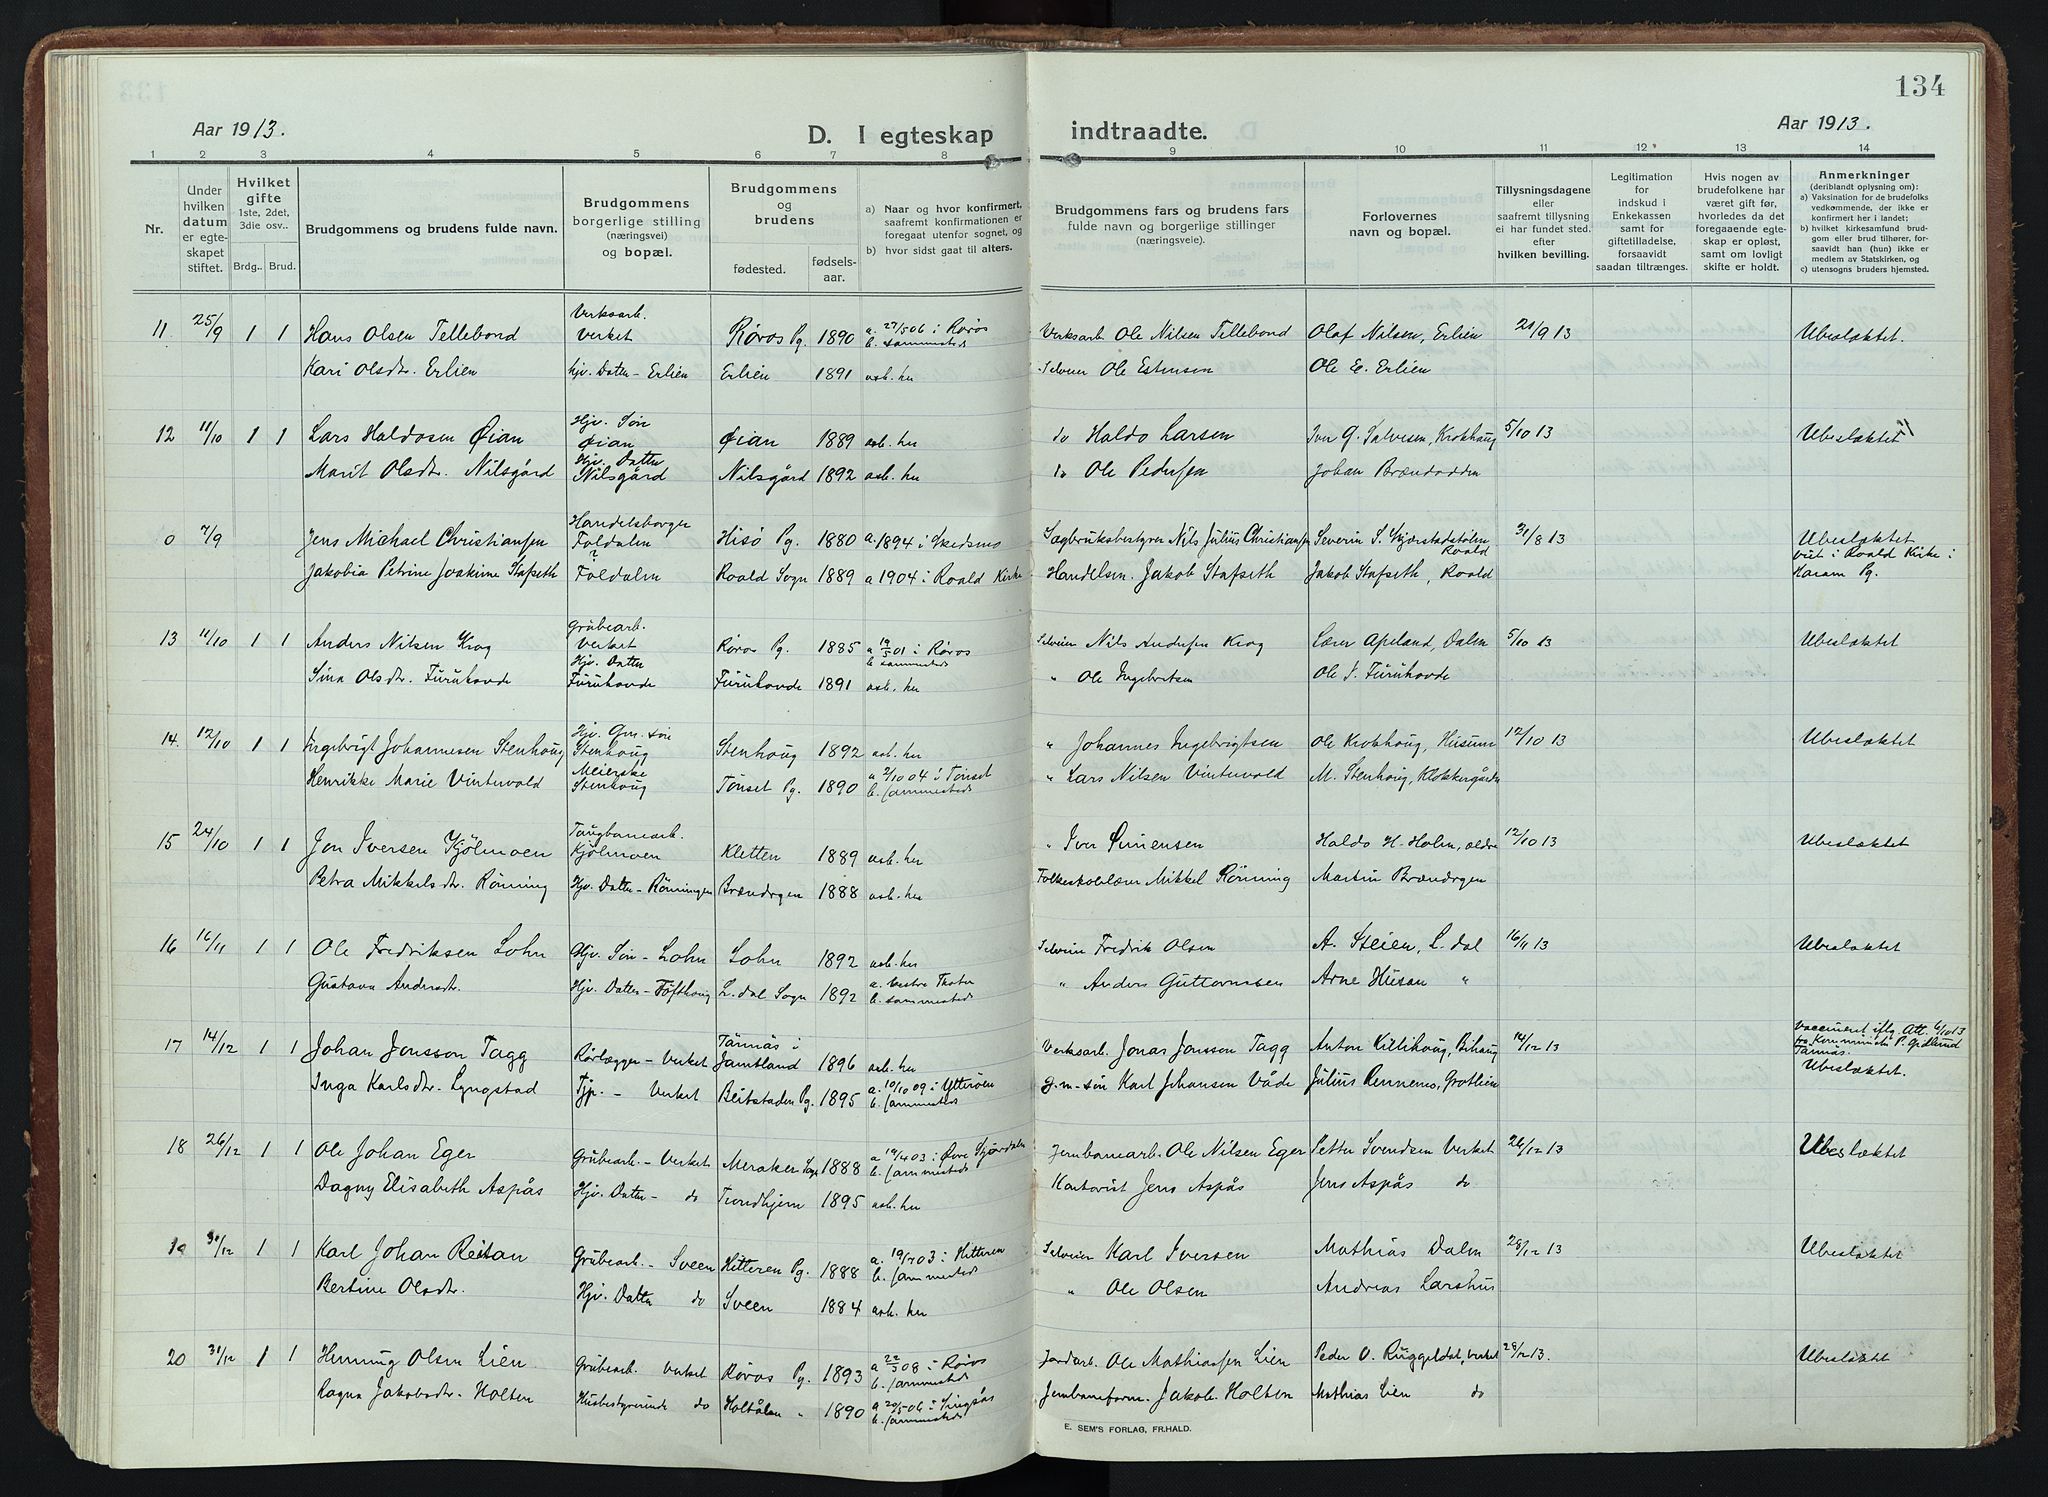 134
Aar 1913.
D. I egteskap
indtraadte.
Aar 1913.
1 2 3 4 5 6 7 8 9 10 11 12 13 14
Nr.
Under hvilken datum er egteskapet stiftet.
Hvilket gifte 1ste, 2det, 3die osv..
Brdg.. Brud.
Brudgommens og brudens fulde navn.
Brudgommens borgerlige stilling (næringsvei) og bopæl.
Brudgommens og brudens
fødested. fødsels-aar.
a) Naar og hvor konfirmert, saafremt konfirmationen er foregaat utenfor sognet, og
b) hvor sidst gaat til alters.
Brudgommens fars og brudens fars fulde navn og borgerlige stillinger (næringsveie).
Forlovernes navn og bopæl.
Tillysningsdagene eller saafremt tillysning ei har fundet sted. efter hvilken bevilling.
Legitimation for indskud i Enkekassen samt for giftetilladelse, forsaavidt saadan tiltrænges.
Hvis nogen av brudefolkene har været gift før, hvorledes da det foregaaende egteskap er opløst, samt om lovligt skifte er holdt.
Anmerkninger (deriblandt oplysning om):
a) Vaksination for de brudefolks vedkommende, der ikke er konfirmert her i landet;
b) hvilket kirkesamfund brudgom eller brud tilhører, forsaavidt han (hun) ikke er medlem av Statskirken, og
c) utensogns bruders hjemsted.
11. 25/9 1 1 Hans Olsen Tellebond Verksarb. Verket Røros Pg. 1890 a. 27/5 06 i Røros b. sammesteds Verksarb. Ole Nilsen Tellebond Olaf Nilsen, Erlien 21/9 13 Ubeslæktet.
Kari Olsdtr. Erlien Hjv. Datter - Erlien Erlien 1891 asb. her Selveier Ole Estensen Ole E. Erlien
12 11/10 1 1 Lars Haldosen Øian Hjv. Søn Øian Øian 1889 asb. her do Haldo Larsen Iver G. Salvesen, Krokhaug 5/10 13 Ubeslæktet
Marit Olsdtr. Nilsgård Hjv. Datter Nilsgård Nilsgård 1892 asb. her do Ole Pedersen Johan Brændodden
0 7/9 Jens Michael Christiansen Handelsborger Foldalen Hisö Pg. 1880 a. 1894 i Skedsmo Sagbruksbestyrer Nils Julius Christiansen Severin S. Skjærstadstølen Roald 31/8 13 Ubeslæktet viet i Roald Kirke i Haram Pg.
Jakobia Petrine Joakime Stafseth ? Foldalen Roald Sogn 1889 a 1904 i Roald Kirke Handelsm. Jakob Stafseth Jakob Stafseth, Roald
13 11/10 1 1 Anders Nilsen Krog Grubearb. Verket Røros Pg. 1885 a 19/5 01 i Røros b. sammesteds Selveier Nils Andersen Krog Lærer Apeland, Dalen 5/10 13 Ubeslæktet
Sina Olsdtr. Furuhovde Hjv. Datter Furuhovde Furuhovde 1891 asb. her " Ole Ingebretsen Ole S. Furuhovde
14. 12/10 1 1 Ingebrigt Johannesen Stenhoug Hjv. Gm. søn Stenhoug Stenhoug 1892 asb. her " Johannes Ingebrigtsen Ole Krokhoug, Husum 12/10 13 Ubeslæktet
Henrikke Marie Vintervold Meierske Stenhoug Tønset Pg. 1890 a 2/10 04 i Tønset b. sammesteds " Lars Nilsen Vintervold M. Stenhoug, Klokkergården
15 24/10 1 1 Jon Iversen Kjölmoen Taugbanearb. Kjölmoen Kletten 1889 asb. her " Iver Simensen Haldo H. Holm, ældre 12/10 13 Ubeslæktet
Petra Mikkelsdtr. Rönning Hjv. Datter - Rönningen Brændrgen 1888 asb. her Folkeskolelærer Mikkel Rönning Martin Brændrgen
16 16/11 1 1 Ole Fredriksen Lohn Hjv. Søn - Lohn Lohn 1892 asb. her Selveier Fredrik Olsen A. Steien, L. dal 16/11 13 Ubeslæktet
Gustava Andersdtr. Hjv. Datter - Tofthoug L. dal Sogn 1892 a. Vestre Thoten b. sammesteds " Anders Guttormsen Arne Husan "
17 14/12 1 1 Johan Jonsson Tagg Rørlægger - Verket Tännäs i Jamtland 1896 asb. her Verksarb. Jonas Jonsson Tagg Anton Killihoug, Bihaug 14/12 13 Vaccineret iflg. Att. 6/10 13 fra Kominister P. Godlund Tännäs. Ubeslæktet.
Inga Karlsdtr. Lyngstad Tjp. - Verket Beitstaden Pg. 1895 a. 10/10 09 i Ytterøen b. sammesteds g.m-søn Karl Johansen Våde Julius Rennemo, Grotlien
18 26/12 1 1 Ole Johan Eger Grubearb. - Verket Meraker Sogn 1888 a 19/4 03 i Øvre Stjørdalen b. sammesteds Jernbanearb. Ole Nilsen Eger Petter Svendsen Verket 26/12 13 Ubeslæktet
Dagny Elisabeth Aspås Hjv. Datter - do Trondhjem 1895 asb. her Kontorist Jens Aspås Jens Aspås do
19 31/12 1 1 Karl Johan Reitan Grubearb. - Sveen Hitteren Pg. 1888 a. 19/7 03 i Hitteren b. sammesteds Selveier Karl Iversen Mathias Dalen 28/12 13 Ubeslæktet
Bertine Olsdtr. Hjv. Datter do Sveen 1884 asb. her " Ole Olsen Andreas Larshus
20 31/12 1 1 Henning Olsen Lien Grubearb. Verket Røros Pg. 1893 a 22/5 08 i Røros b. sammesteds Jordarb. Ole Mathiassen Lien Peder O. Ruggeldal, Verket 28/12 13. Ubeslæktet
Ragna Jakobsdtr. Holten Husbestyrerinde do Holtålen " 1890 a 20/5 06 i Singsås b. sammesteds Jernbaneform. Jakob Holten Mathias Lien do
E. SEM'S FORLAG, FR.HALD.